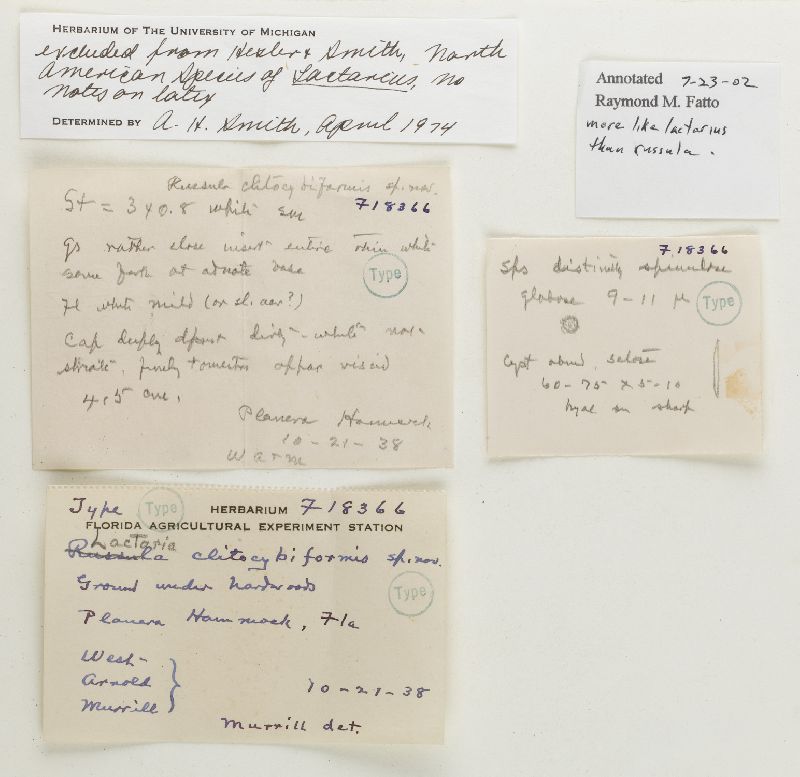 HERBARIUM OF THE UNIVERSITY OF MICHIGAN
excluded from Hesler & Smith, North
American Species of Lactarius, no
notes on latex
DETERMINED BY A. H. Smith, April 1974
Annotated 7-23-02
Raymond M. Fatto
more like lactarius
than russula.
Russula clitocybiformis sp. nov.
St = 3 x 0.8 white sm
F18366
gs rather close insert entire thin white
some fork at adnate base
Type
Fl white mild (or sl. acr?)
Cap deeply dirty-white non-
striate, finely tomentos appar viscid
4.5 cm.
Planera Hammock
10-21-38
W a r m
F18366
Sps distinctly spinulose
globose 9-11 µ
Type
Cyst abund, setose
60-75 x 5-10
hyal sm sharp
Type
Type
HERBARIUM F18366
FLORIDA AGRICULTURAL EXPERIMENT STATION
Lactaria
Russula clitocybiformis sp. nov.
Ground under hardwoods
Type
Planera Hammock, Fla
West-
Arnold
Murrill
10-21-38
Murrill det.